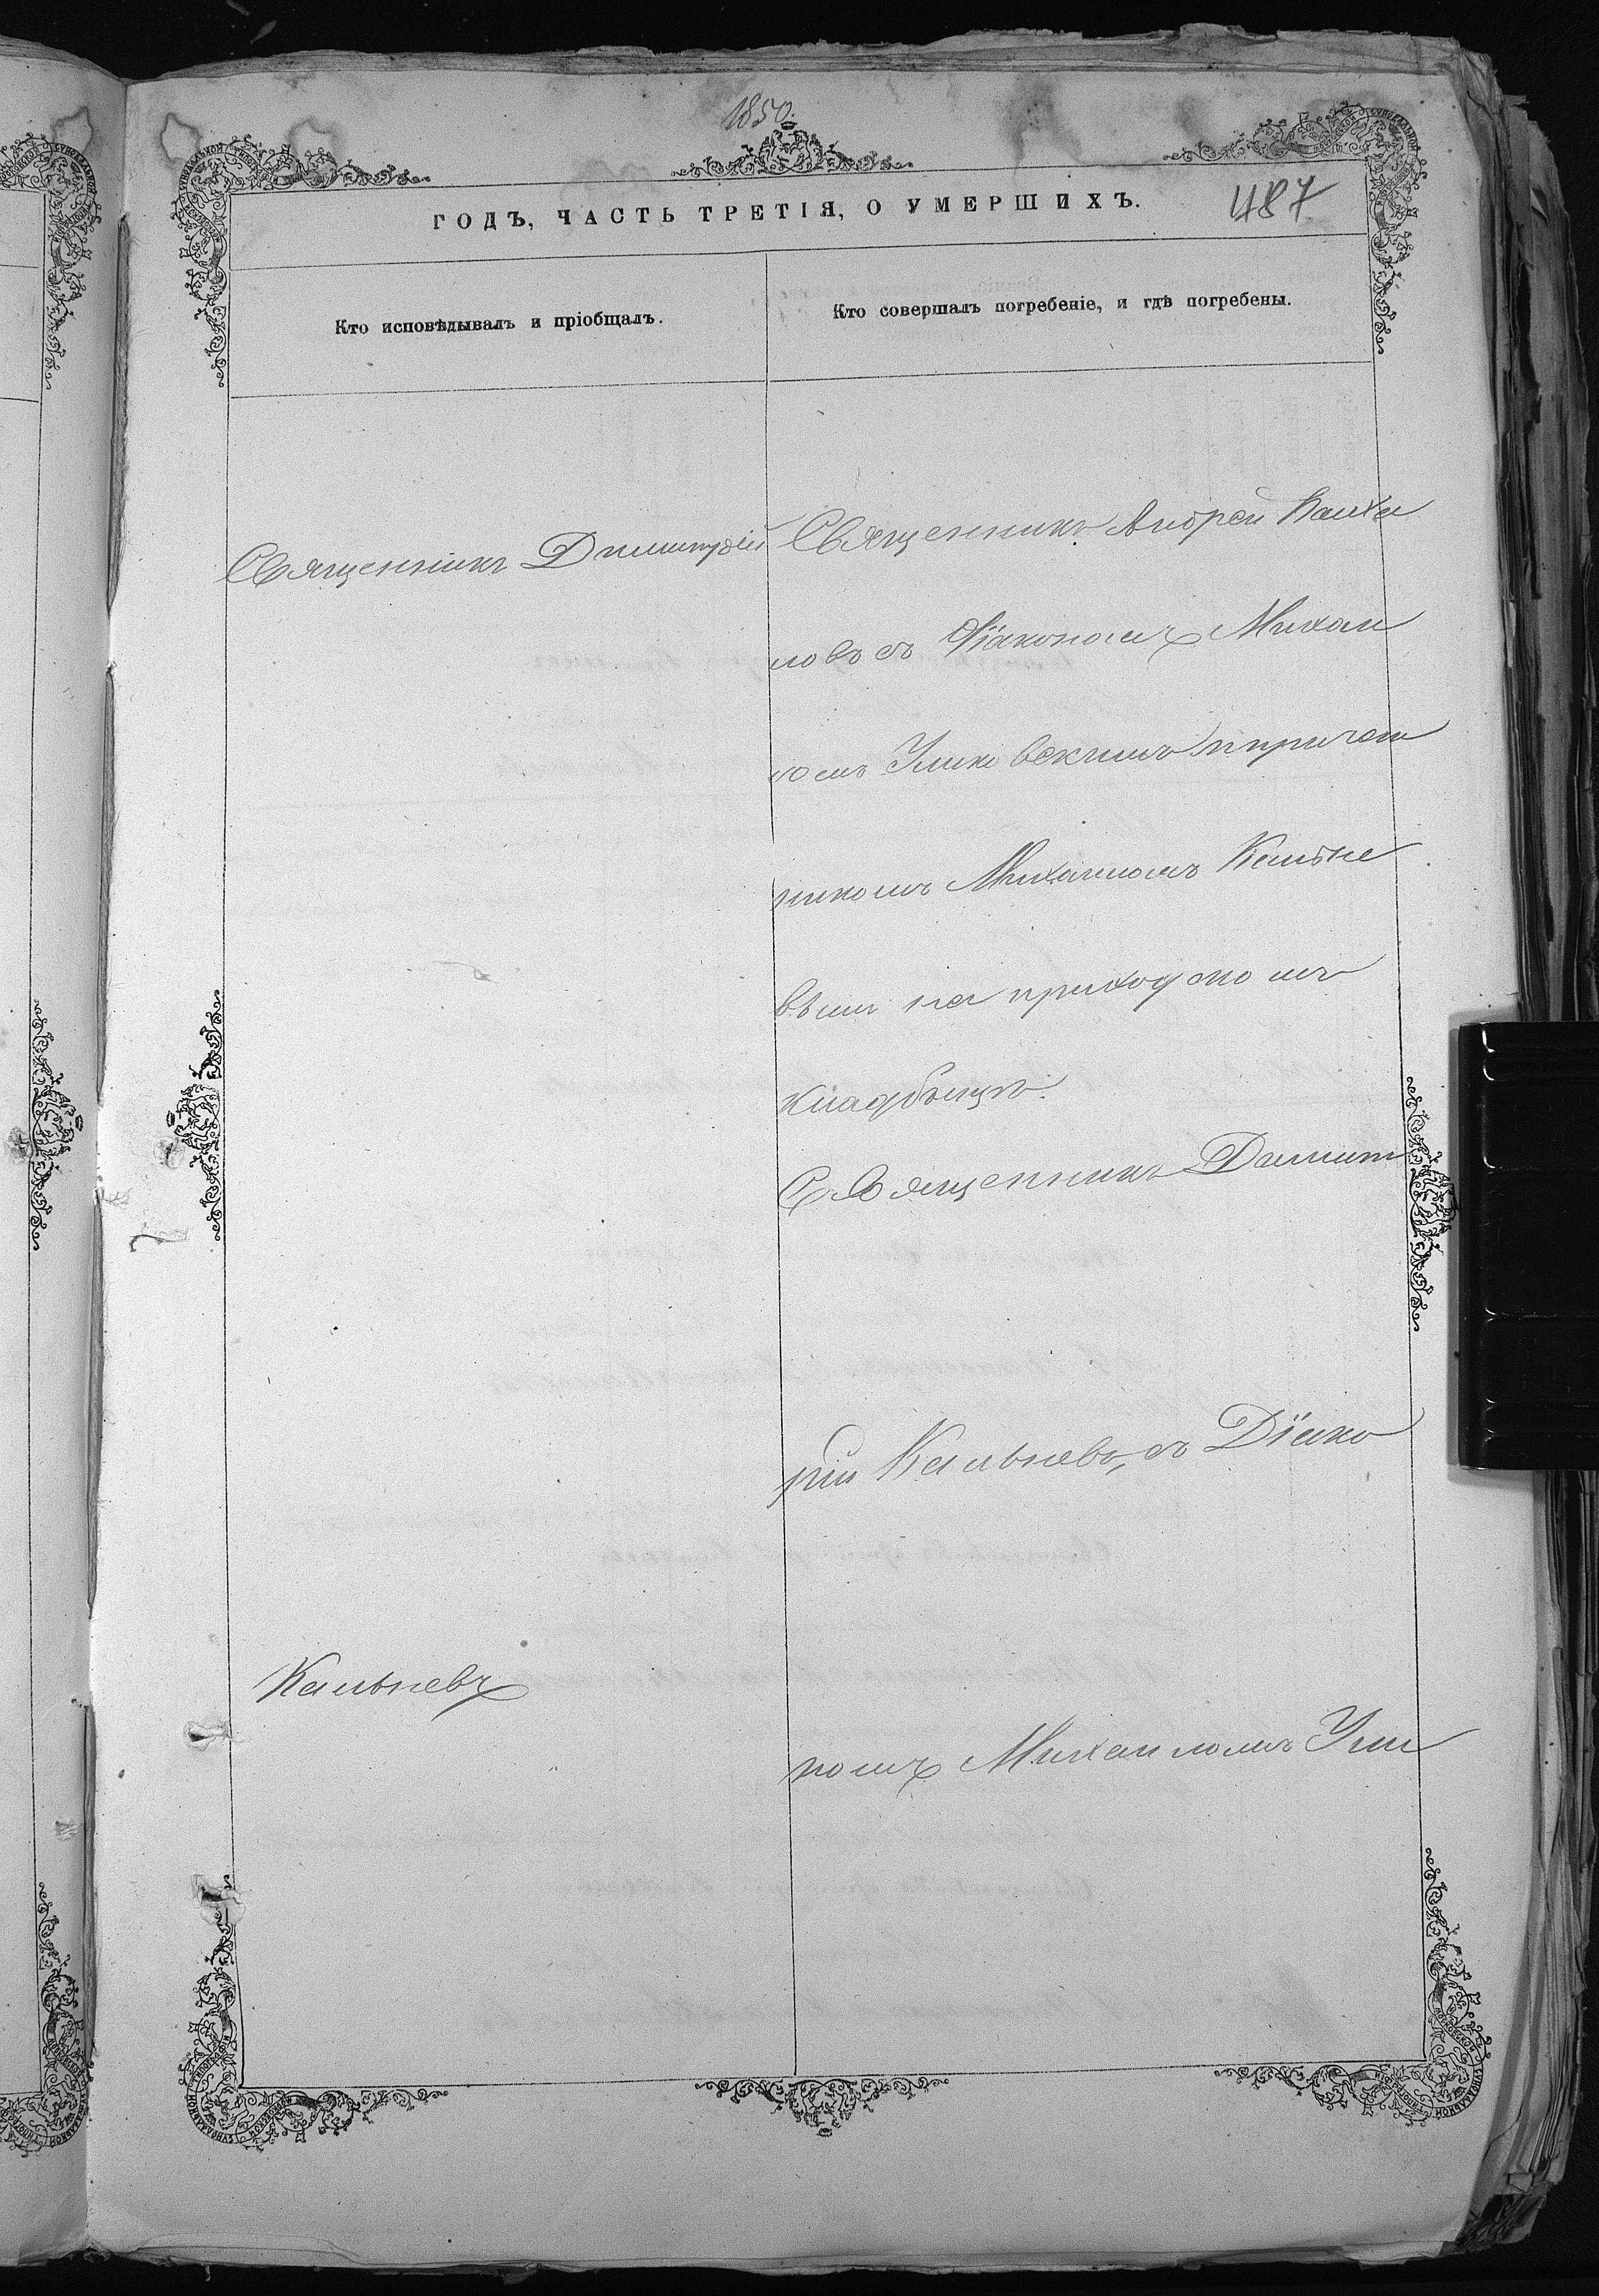 1850.
ГОДЪ, ЧАСТЬ ТРЕТІЯ, О УМЕРШИХЪ.
487
Кто исповѣдывалъ и пріобщалъ.
Кто совершалъ погребеніе, и гдѣ погребены.
Священникъ Димитрій
Кальневъ
Священникъ Андрей
ловъ съ Діакономъ Михаи
ломъ причет
никомъ Михаиломъ Кальне
вымъ на приходскомъ
кладбищѣ.
Священникъ Димит
рій Кальневъ, съ Діако
номъ Михаиломъ Ули